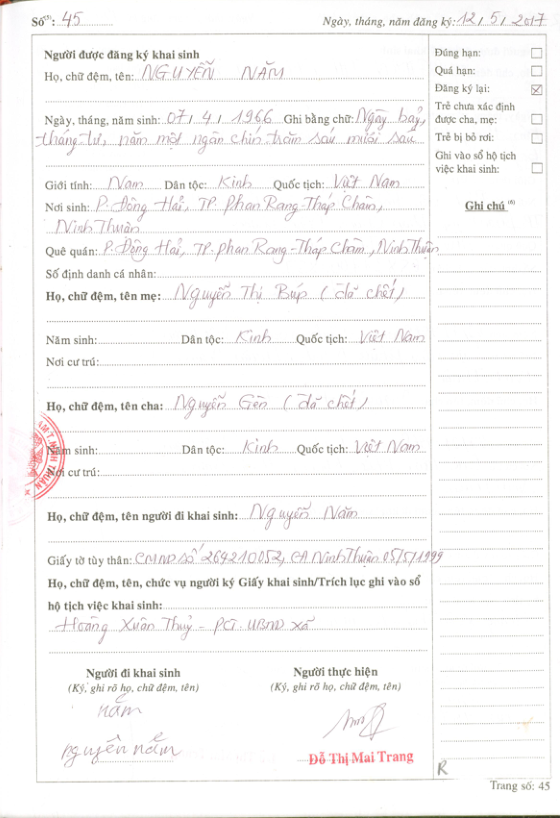 Số⁽⁵⁾: 45 Ngày, tháng, năm đăng ký: 12, 5, 2017
Người được đăng ký khai sinh
Họ, chữ đệm, tên: NGUYỄN NĂM
Ngày, tháng, năm sinh: 07, 4, 1966 Ghi bằng chữ: Ngày bảy,
tháng tư, năm một ngàn chín trăm sáu mươi sáu
Giới tính: Nam Dân tộc: Kinh Quốc tịch: Việt Nam
Nơi sinh: P. Đông Hải, TP. Phan Rang-Tháp Chàm,
Ninh Thuận
Quê quán: P. Đông Hải, TP. Phan Rang-Tháp Chàm, Ninh Thuận
Số định danh cá nhân:
Họ, chữ đệm, tên mẹ: Nguyễn Thị Búp (đã chết)
Năm sinh: Dân tộc: Kinh Quốc tịch: Việt Nam
Nơi cư trú:
Họ, chữ đệm, tên cha: Nguyễn Gên (đã chết)
Năm sinh: Dân tộc: Kinh Quốc tịch: Việt Nam
Nơi cư trú:
Họ, chữ đệm, tên người đi khai sinh: Nguyễn Năm
Giấy tờ tùy thân: CMND số 264210052, CA Ninh Thuận 05/5/1999
Họ, chữ đệm, tên, chức vụ người ký Giấy khai sinh/Trích lục ghi vào sổ
hộ tịch việc khai sinh:
Hoàng Xuân Thuỷ - PCT. UBND xã
Người đi khai sinh Người thực hiện
(Ký, ghi rõ họ, chữ đệm, tên) (Ký, ghi rõ họ, chữ đệm, tên)
năm
nguyễn năm
Đỗ Thị Mai Trang
Đúng hạn:
Quá hạn:
Đăng ký lại:
Trẻ chưa xác định
được cha, mẹ:
Trẻ bị bỏ rơi:
Ghi vào sổ hộ tịch
việc khai sinh:
Ghi chú ⁽⁶⁾
R
Trang số: 45